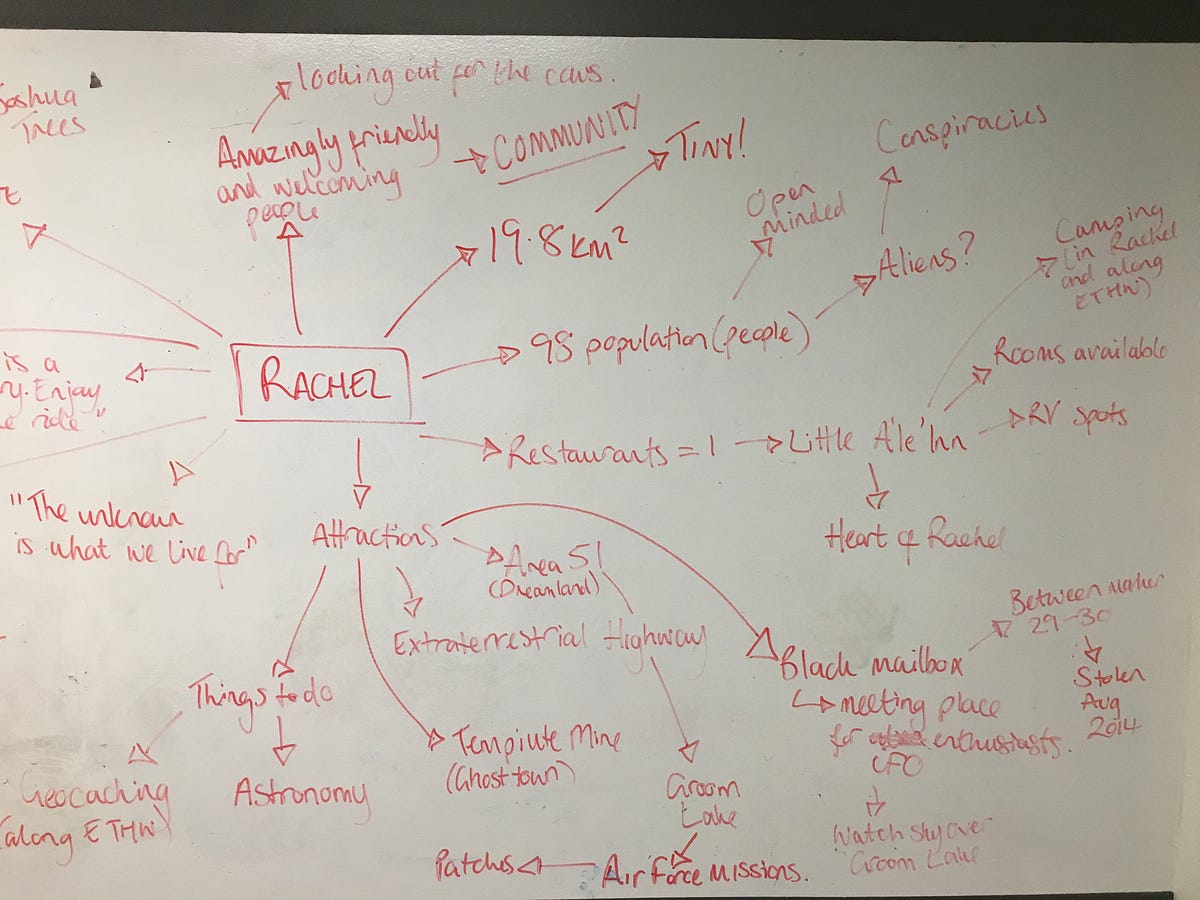 Joshua
Trees
looking out for the cows.
Amazingly friendly
and welcoming
people
COMMUNITY
TINY!
19.8 km²
Conspiracies
Open
minded
Aliens?
Camping
(in Rachel
and along
ETHW)
98 population (people)
RACHEL
is a
Enjoy
ride"
Rooms available
RV spots
Restaurants = 1
Little A'le'Inn
Heart of Rachel
"The unknown
is what we live for"
Attractions
Area 51
(Dreamland)
Extraterrestrial Highway
Between marker
29-30
Stolen
Aug
2014
Black mailbox
meeting place
for enthusiasts.
UFO
Watch sky over
Groom Lake
Things to do
Tempiute Mine
(Ghost town)
Geocaching
(along ETHW)
Astronomy
Groom
Lake
Air Force missions.
Patches